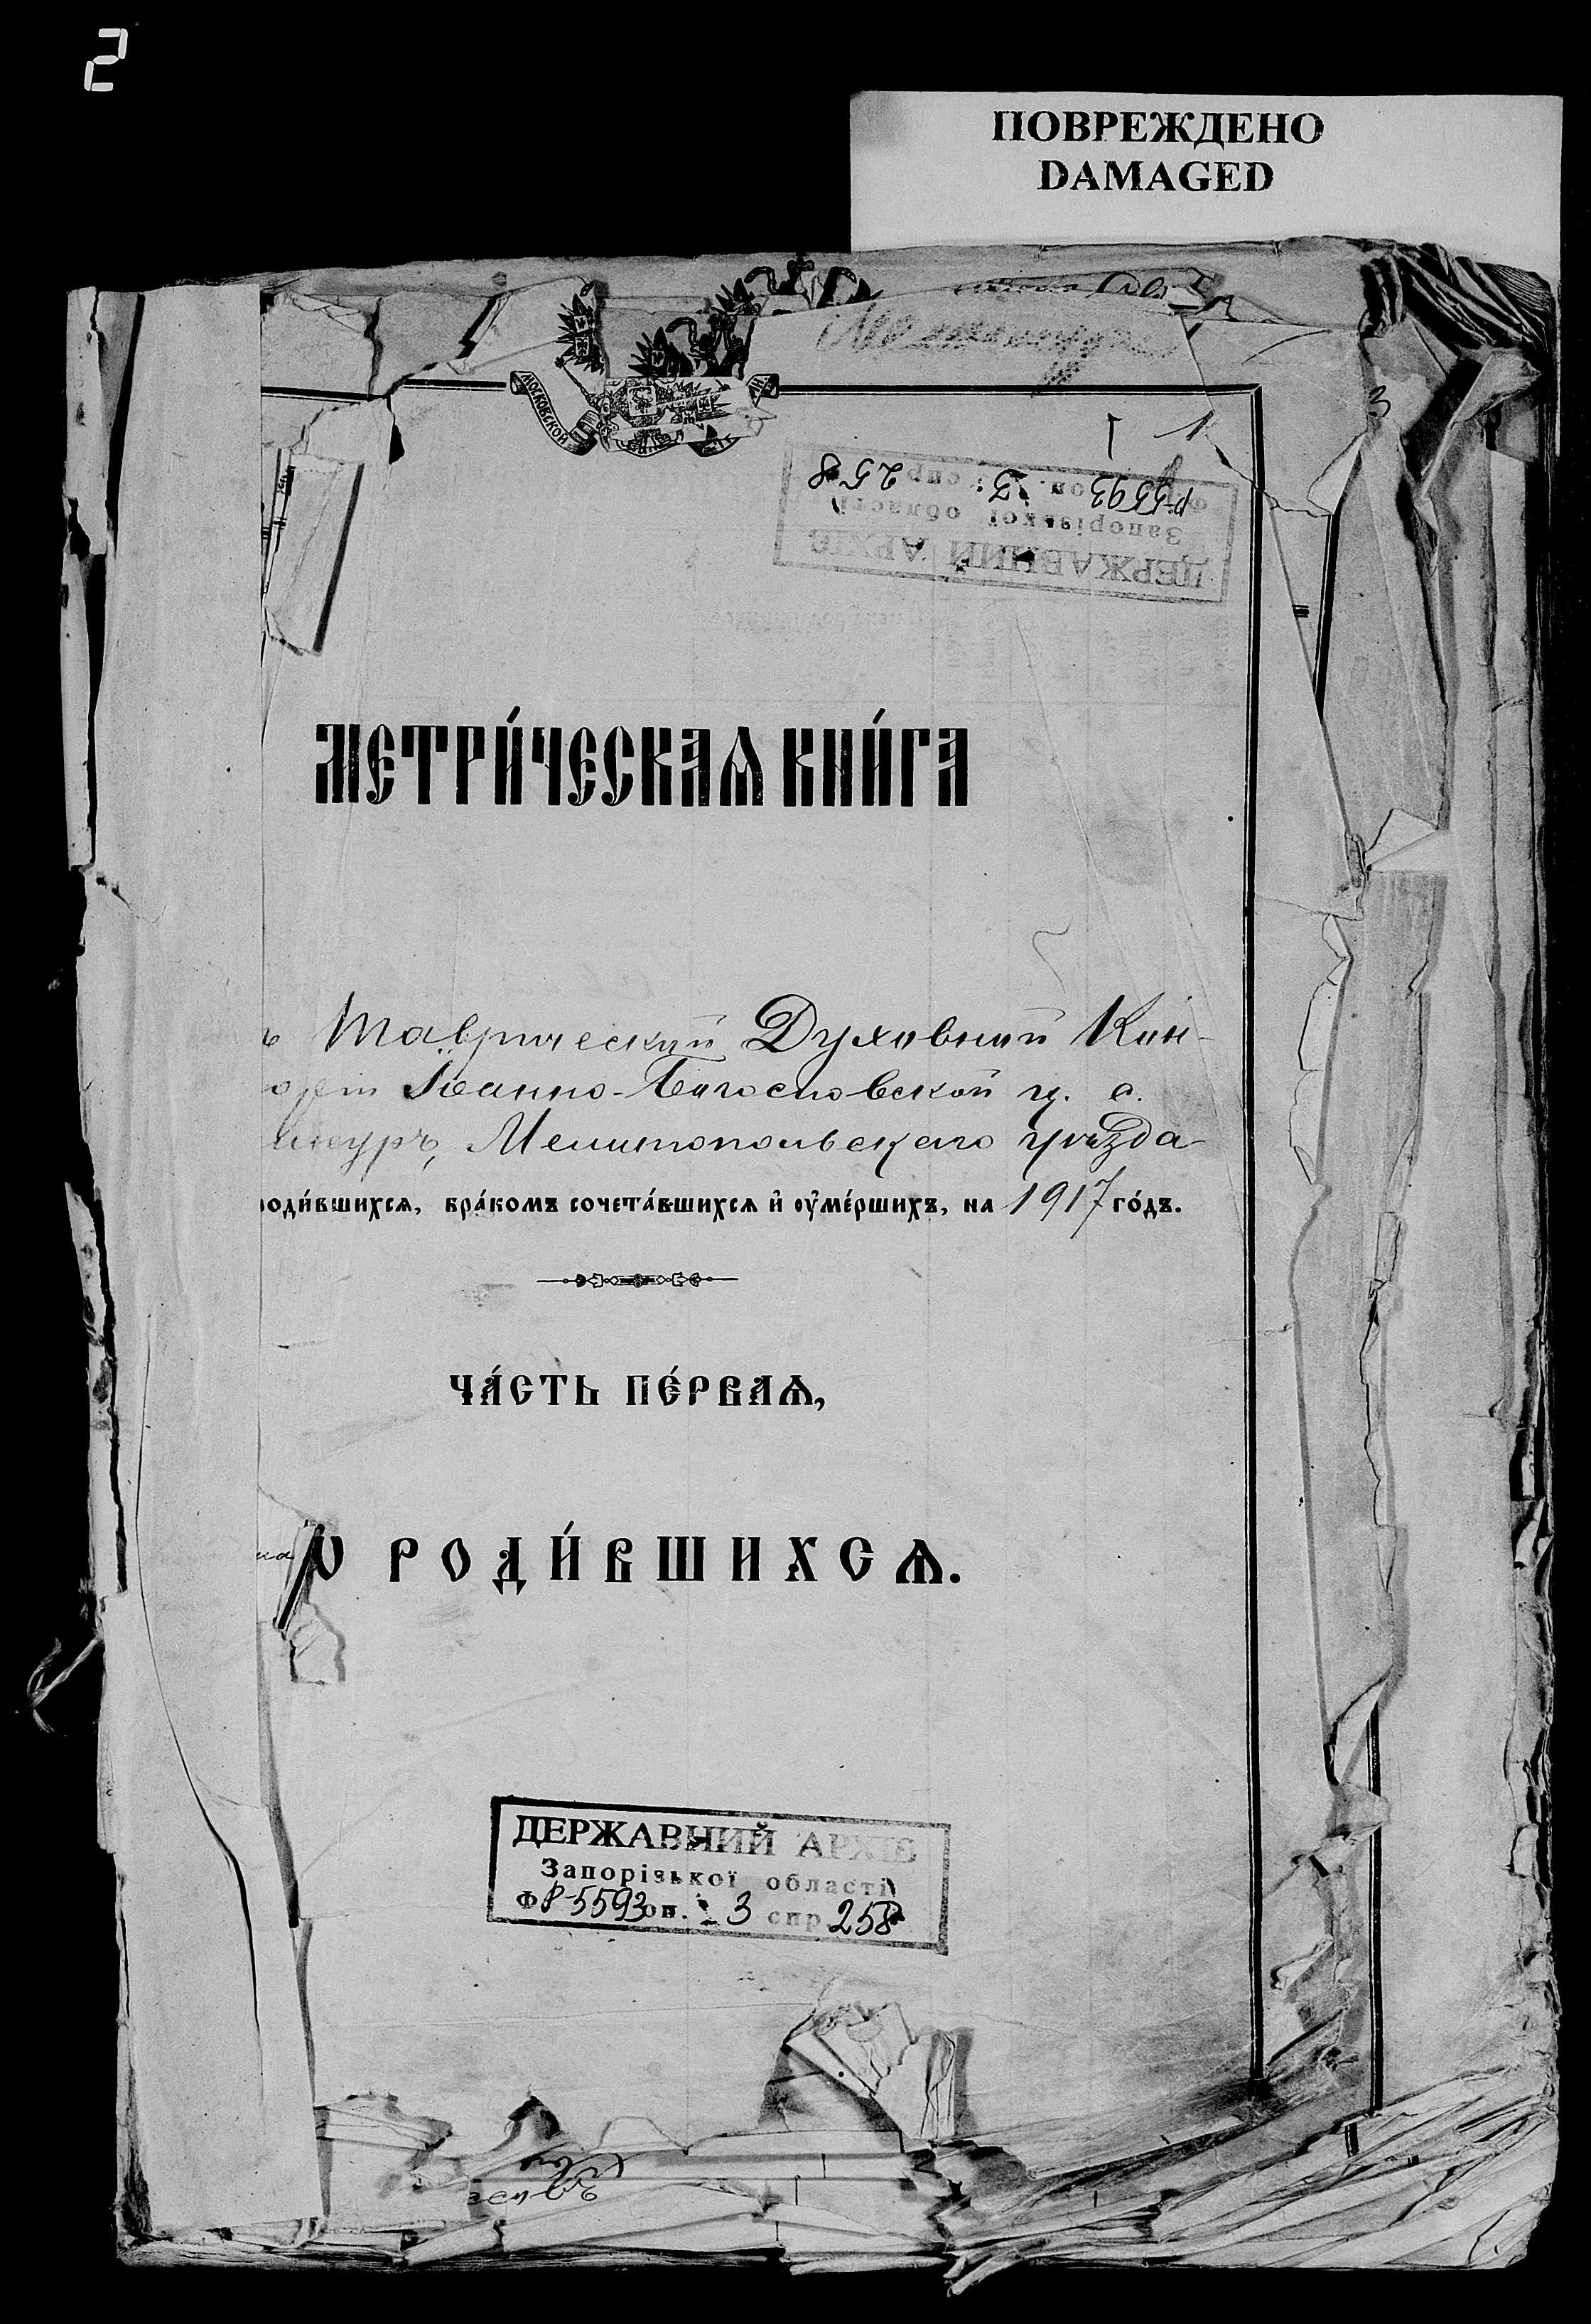 2
ПОВРЕЖДЕНО
DAMAGED
МОСКОВСКОЙ
1
3
ДЕРЖАВНИЙ АРХІВ
Запорізької області
Ф. Р-5593 оп. 3 спр. 258
МЕТРИ́ЧЕСКАѦ КНИ́ГА
Таврической Духовной Кон-
Іоанно-Богословской ц. с.
Мелитопольскаго уѣзда
роди́вшихсѧ, бра́комъ сочета́вшихсѧ и҆ оу҆ме́ршихъ, на 1917 го́дъ.
ЧА́СТЬ ПЕ́РВАѦ,
Ѡ РОДИ́ВШИХСѦ.
ДЕРЖАВНИЙ АРХІВ
Запорізької області
Ф Р-5593 оп. 3 спр 258